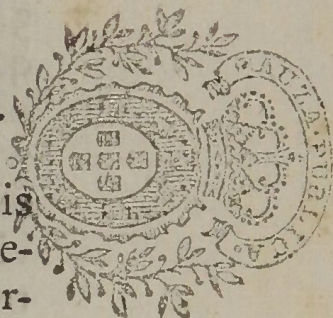 AUZA·PUBLICA·
is
e-
r-